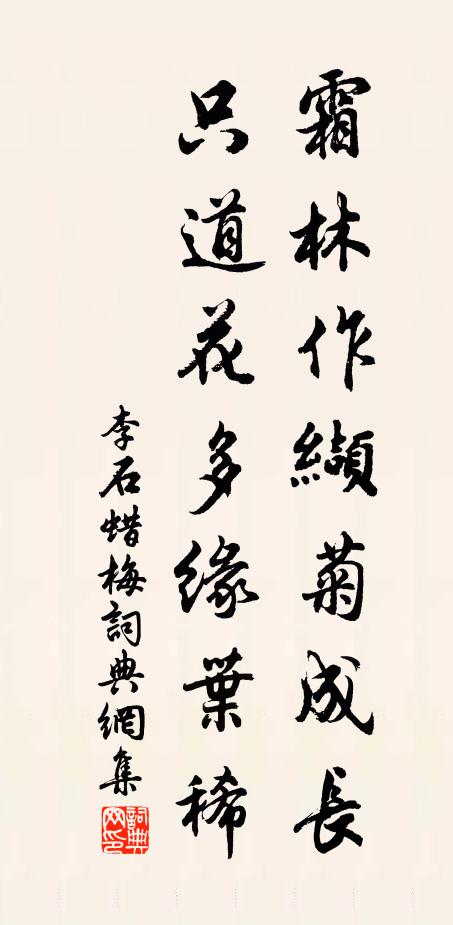 霜林作纈菊成長
只道花多緣葉稀
李石蜡梅詞典網集
詞典網印